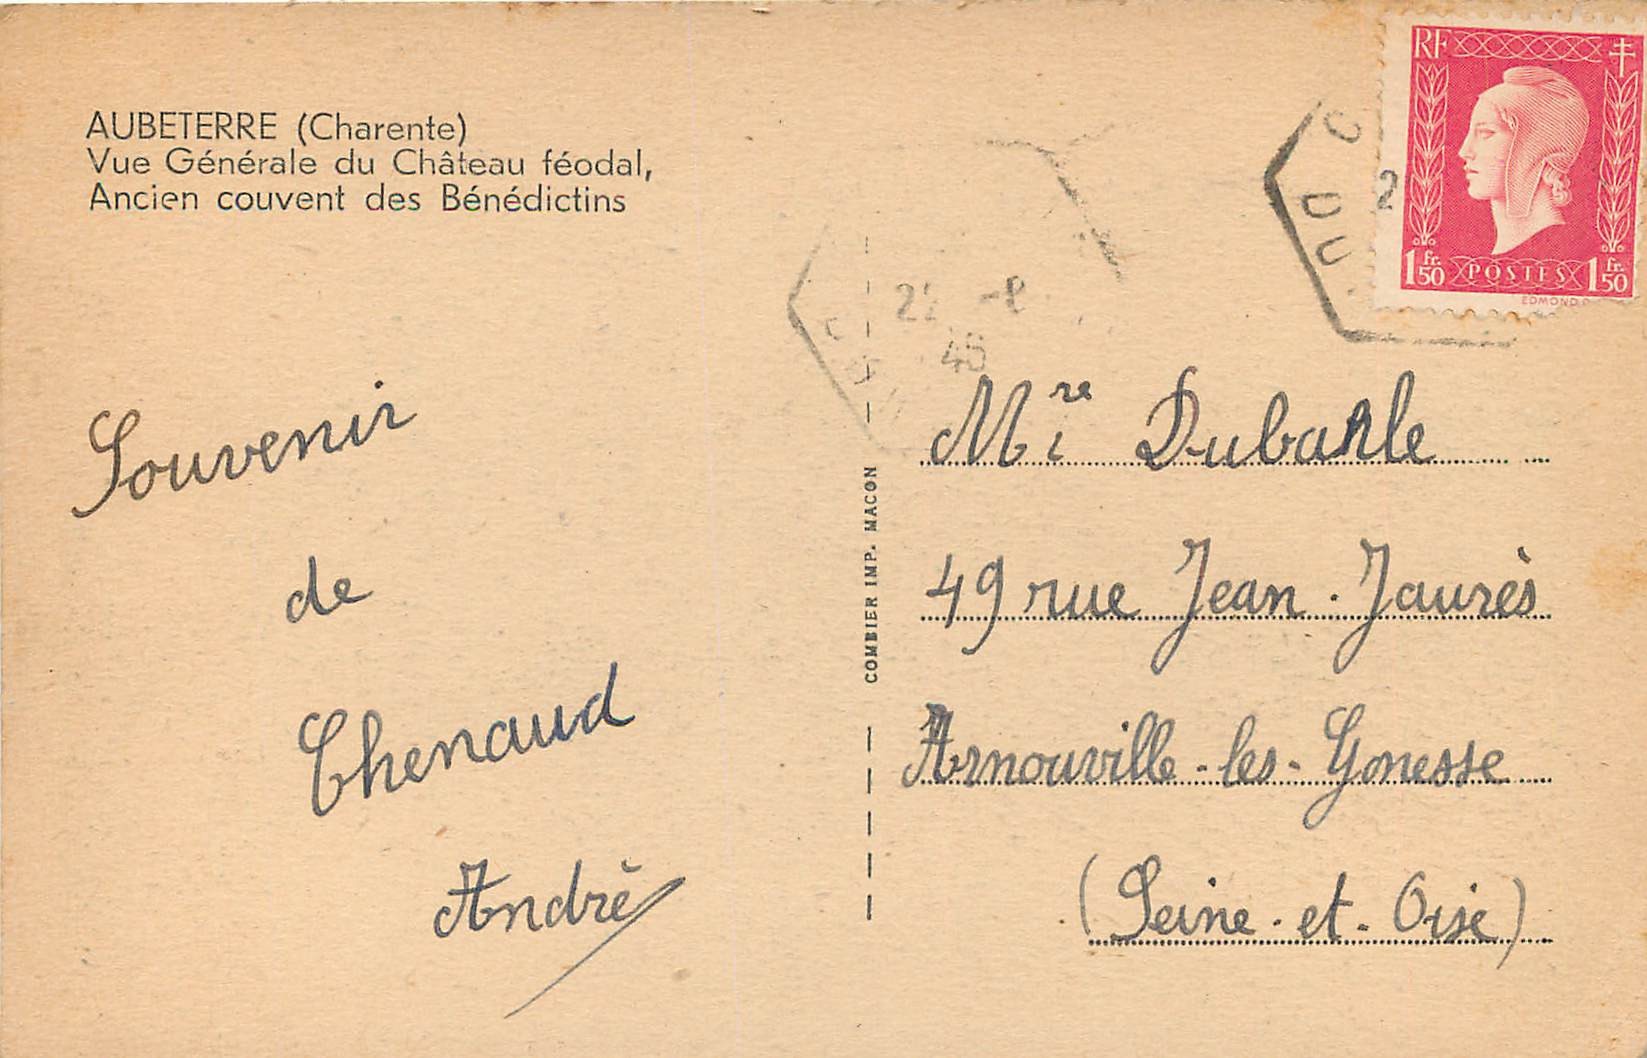 AUBETERRE (Charente)
Vue Générale du Château féodal,
Ancien couvent des Bénédictins
Souvenir
de
Chenaud
André
COMBIER IMP. MACON
RF
1 fr. 50 POSTES 1 fr. 50
22
45
Mre Dubarle
49 rue Jean-Jaurès
Arnouville-les-Gonesse
(Seine-et-Oise)